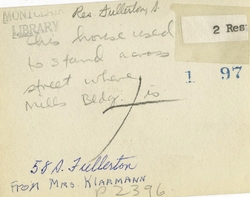 MONTCLAIR
LIBRARY
Res Fullerton, S
2 Res
This house used
to stand across
street where
Mills Bldg. is
1 97
58 S. Fullerton
From Mrs Klarmann
P2396